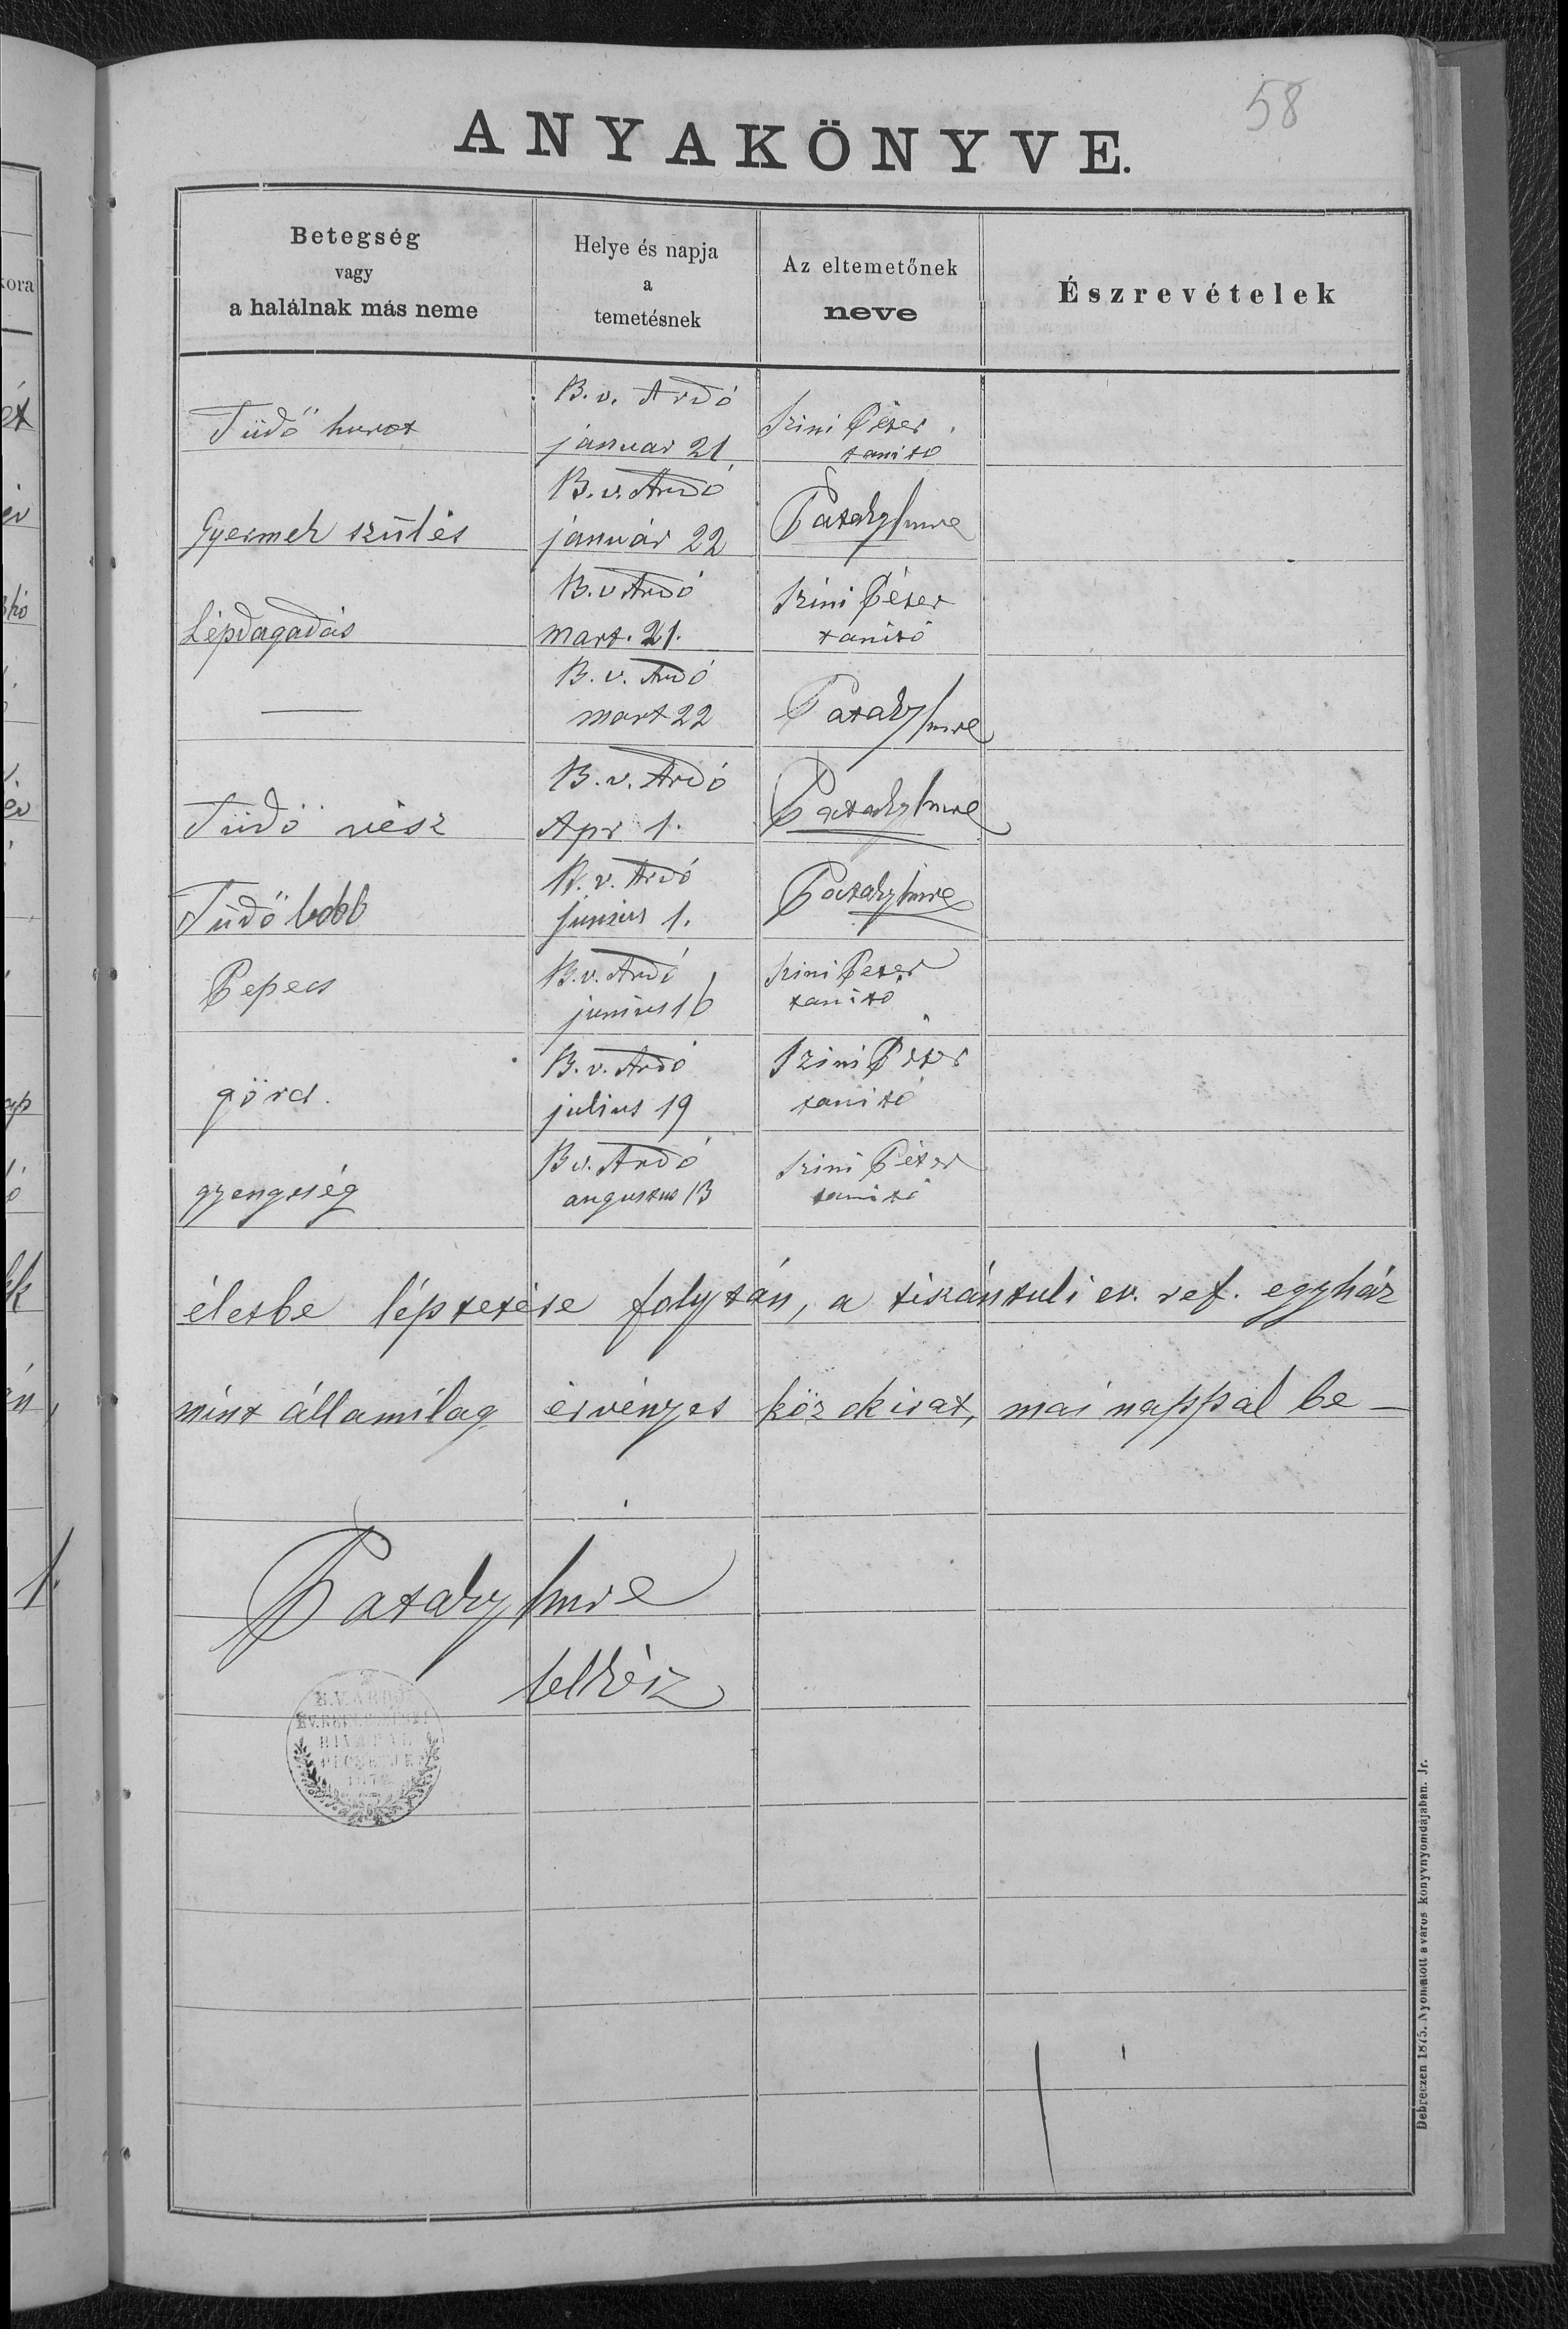 58
ANYAKÖNYVE.
Betegség
vagy
a halálnak más neme
Helye és napja
a
temetésnek
Az eltemetőnek
neve
Észrevételek
Tüdő hurot
B. v. Ardó
januar 21
Szini Péter
tanitó
Gyermek szülés
B. v. Ardó
január 22
Pataky Imre
Lépdagadás
B. v Ardó
mart. 21.
Szini Péter
tanitó
—
B. v. Ardó
mart 22
Pataky Imre
Tüdő vész
B. v. Ardó
Apr 1.
Pataky Imre
Tüdő lobb
B. v. Ardó
junius 1.
Pataky Imre
Repecs
B. v. Ardó
junius 16
Szini Peter
tanitó
görcs.
B. v. Ardó
julius 19
Szini Péter
tanitó
gyengeség
B v. Ardó
augustus 13
Szini Péter
tanitó
életbe léptetése folytán, a tiszántuli ev. ref. egyház
mint államilag érvényes köz okirat, mai nappal be —
Pataky Imre
lelkész
B. V. ARDÓI
HIVATAL
PECSÉTJE
Debreczen 1875. Nyomatott a város könyvnyomdájában. Jr.
kora